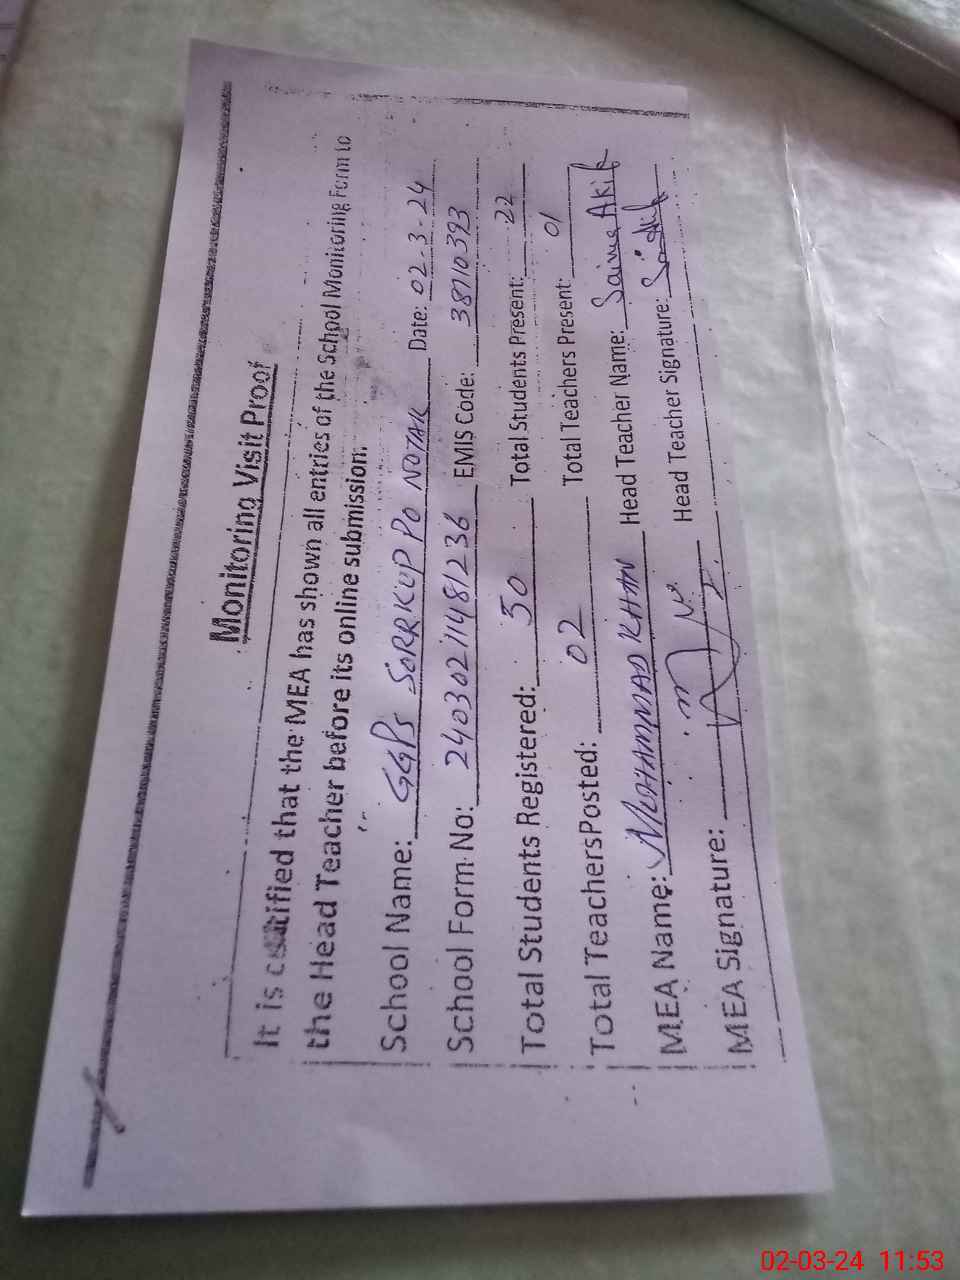 Monitoring Visit Proof
It is certified that the MEA has shown all entries of the School Monitoring Form to
the Head Teacher before its online submission.
School Name: GGPS SORRKUP PO NOTAK Date: 02.3.24
School Form No: 24030211481236 EMIS Code: 38710393
Total Students Registered: 50 Total Students Present: 22
Total TeachersPosted: 02 Total Teachers Present: 01
MEA Name: MUHAMMAD KHAN Head Teacher Name: Saima Akif
MEA Signature: Head Teacher Signature:
02-03-24 11:53